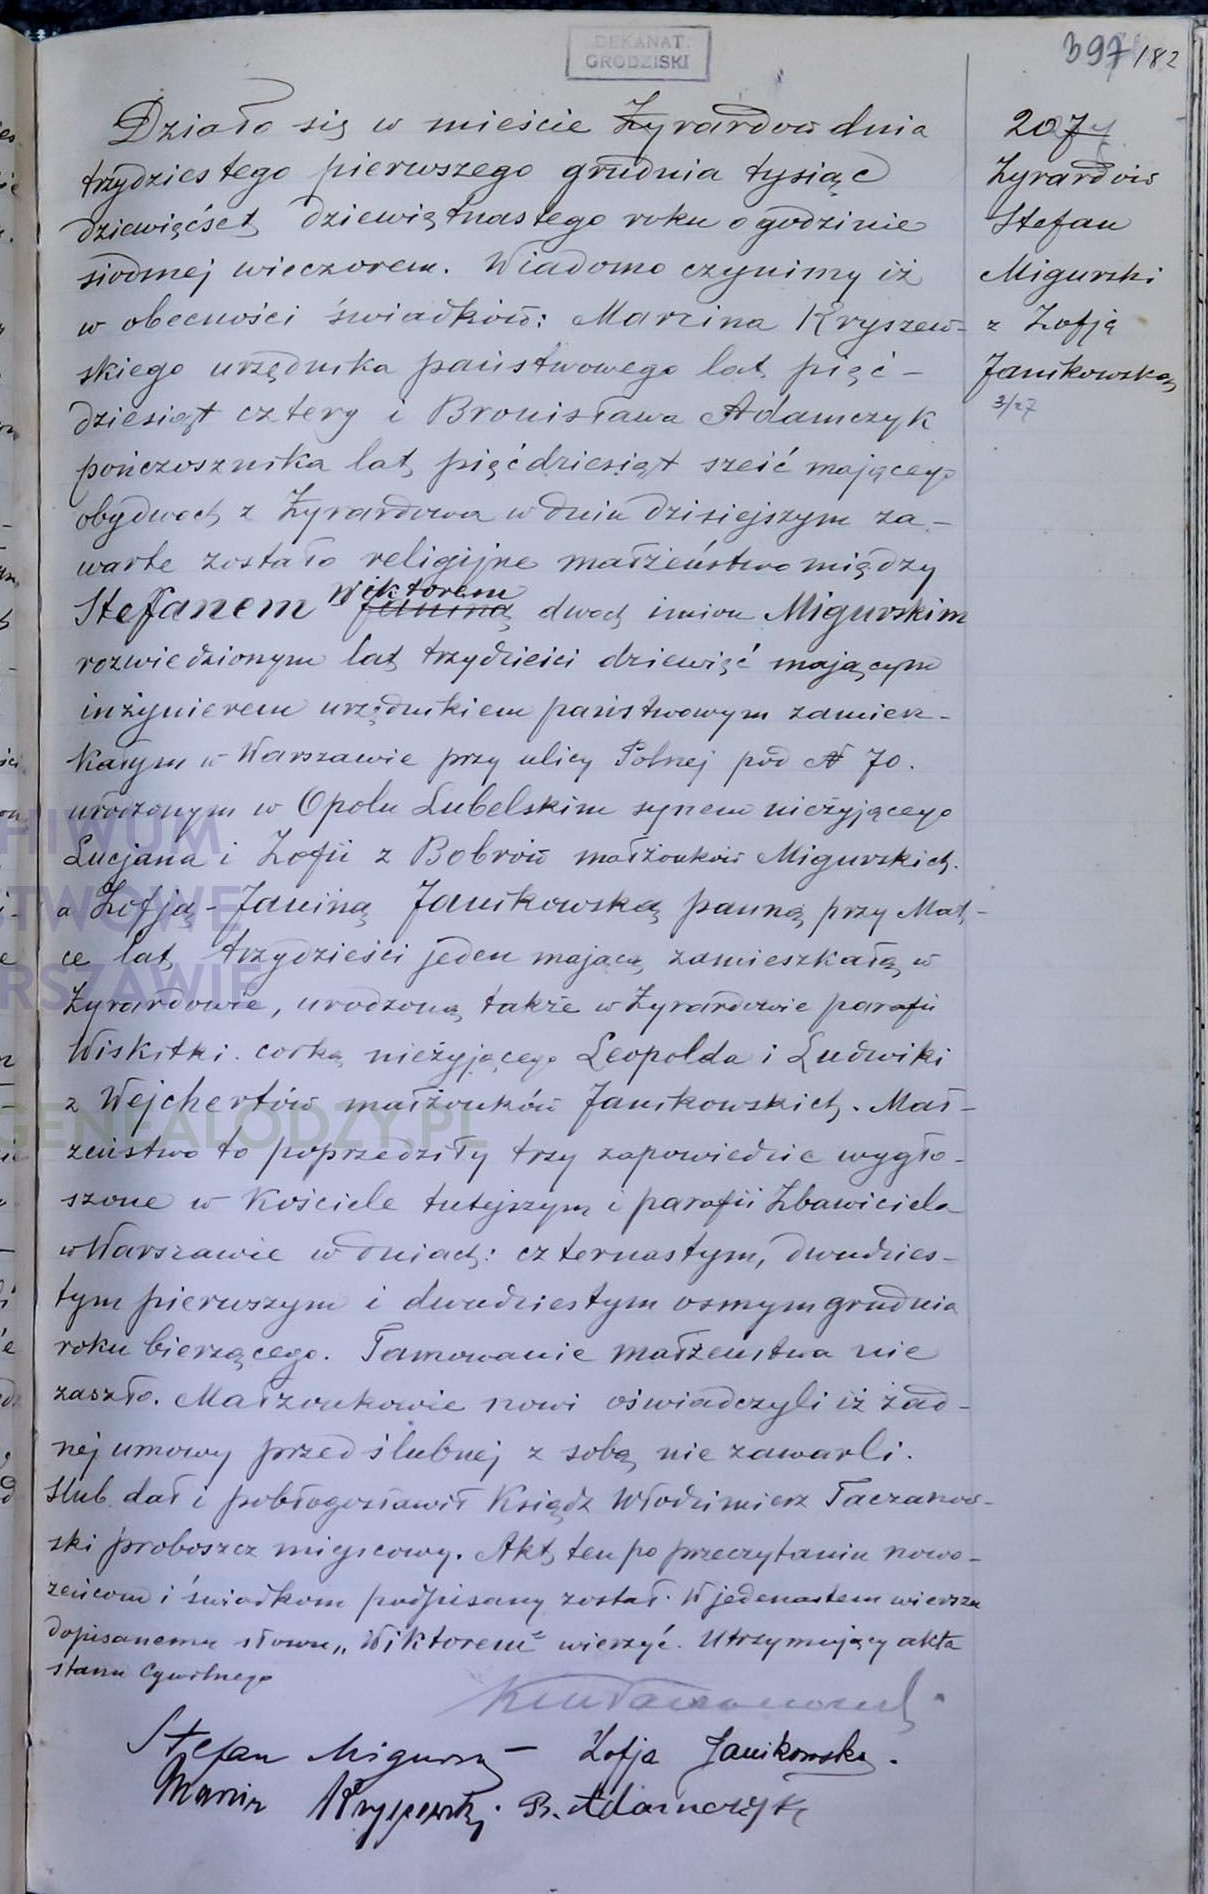 DEKANAT
GRODZISKI
397/182
207
Żyrardów
Stefan
Migurski
z Zofją
Janikowską
3/27
Działo się w mieście Żyrardów dnia
trzydziestego pierwszego grudnia tysiąc
dziewięćset dziewiętnastego roku o godzinie
siódmej wieczorem. Wiadomo czynimy iż
w obecności świadków: Marcina Kryszew-
skiego urzędnika państwowego lat pięć-
dziesiąt cztery i Bronisława Adamczyk
pończosznika lat pięćdziesiąt sześć mającego
obydwóch z Żyrardowa w dniu dzisiejszym za-
warte zostało religijne małżeństwo między
Stefanem Wiktorem Janiną dwoch imion Migurskim
rozwiedzionym lat trzydzieści dziewięć mającym
inżynierem urzędnikiem państwowym zamiesz-
kałym w Warszawie przy ulicy Polnej pod № 70.
urodzonym w Opolu Lubelskim synem nieżyjącego
Lucjana i Zofii z Bobrów małżonków Migurskich.
a Zofją-Janiną Janikowską panną przy Mat-
ce lat trzydzieści jeden mającą, zamieszkałą w
Żyrardowie, urodzoną także w Żyrardowie parafii
Wiskitki. corką nieżyjącego Leopolda i Ludwiki
z Wejchertów małżonków Janikowskich. Mał-
żeństwo to poprzedziły trzy zapowiedzie wygło-
szone w Kościele tutejszym i parafii Zbawiciela
w Warszawie w dniach: czternastym, dwudzies-
tym pierwszym i dwudziestym osmym grudnia
roku bieżącego. Tamowanie małżeństwa nie
zaszło. Małżonkowie nowi oświadczyli iż żad-
nej umowy przedślubnej z sobą nie zawarli.
Slub dał i pobłogosławił Ksiądz Włodzimierz Taczanow-
ski proboszcz miejscowy. Akt ten po przeczytaniu nowo-
żeńcom i świadkom podpisany został. W jedenastem wierszu
dopisanemu słowu „Wiktorem" wierzyć. Utrzymujący akta
stanu Cywilnego
Stefan Migurski Zofja Janikowska.
Marcin Kryszewski. B. Adamczyk
ARCHIWUM
PAŃSTWOWE
W WARSZAWIE
GENEALODZY.PL